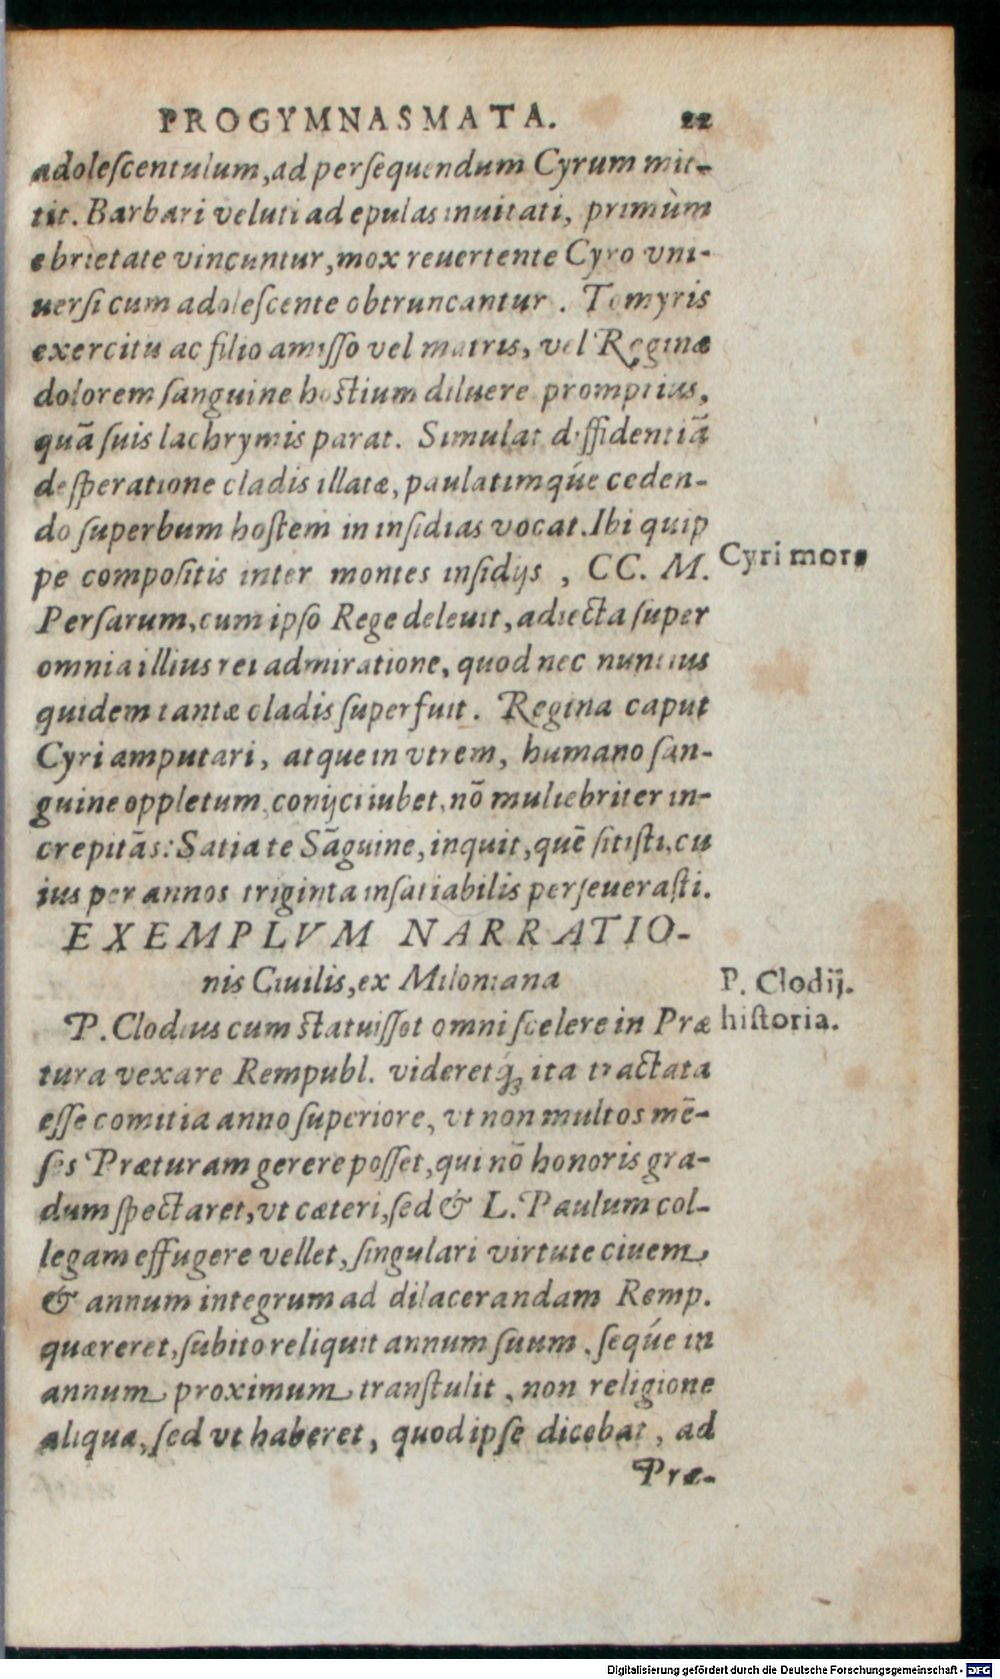 PROGYMNASMATA. 22
adoleſcentulum, ad perſequendum Cyrum mit-
tit. Barbari veluti ad epulas inuitati, primùm
ebrietate vincuntur, mox reuertente Cyro vni-
uerſi cum adoleſcente obtruncantur. Tomyris
exercitu ac filio amiſſo vel matris, vel Reginæ
dolorem ſanguine hoſtium diluere promptius,
quā ſuis lachrymis parat. Simulat diffidentiā
deſperatione cladis illatæ, paulatimqúe ceden-
do ſuperbum hoſtem in inſidias vocat. Ibi quip
pe compoſitis inter montes inſidijs, CC. M.
Cyri mors
Perſarum, cum ipſo Rege deleuit, adiecta ſuper
omnia illius rei admiratione, quod nec nuntius
quidem tantæ cladis ſuperfuit. Regina caput
Cyri amputari, atque in vtrem, humano ſan-
guine oppletum, conijci iubet, nō muliebriter in-
crepitās: Satia te Sāguine, inquit, quē ſitiſti, cu
ius per annos triginta inſatiabilis perſeueraſti.
EXEMPLVM NARRATIO-
nis Ciuilis, ex Miloniana
P. Clodij.
historia.
P. Clodius cum ſtatuiſſet omni ſcelere in Præ
tura vexare Rempubl. videretq́; ita tractata
eſſe comitia anno ſuperiore, vt non multos mē-
ſes Præturam gerere poſſet, qui nō honoris gra-
dum ſpectaret, vt cæteri, ſed & L. Paulum col-
legam effugere vellet, ſingulari virtute ciuem,
& annum integrum ad dilacerandam Remp.
quæreret, ſubito reliquit annum ſuum, ſeqúe in
annum proximum tranſtulit, non religione
aliqua, ſed vt haberet, quod ipſe dicebat, ad
Præ-
Digitalisierung gefördert durch die Deutsche Forschungsgemeinschaft - DFG